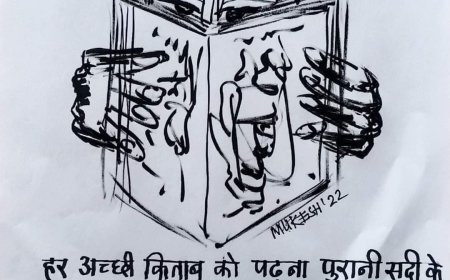 MUKESH'22
हर अच्छी किताब को पढना पुरानी सदी के